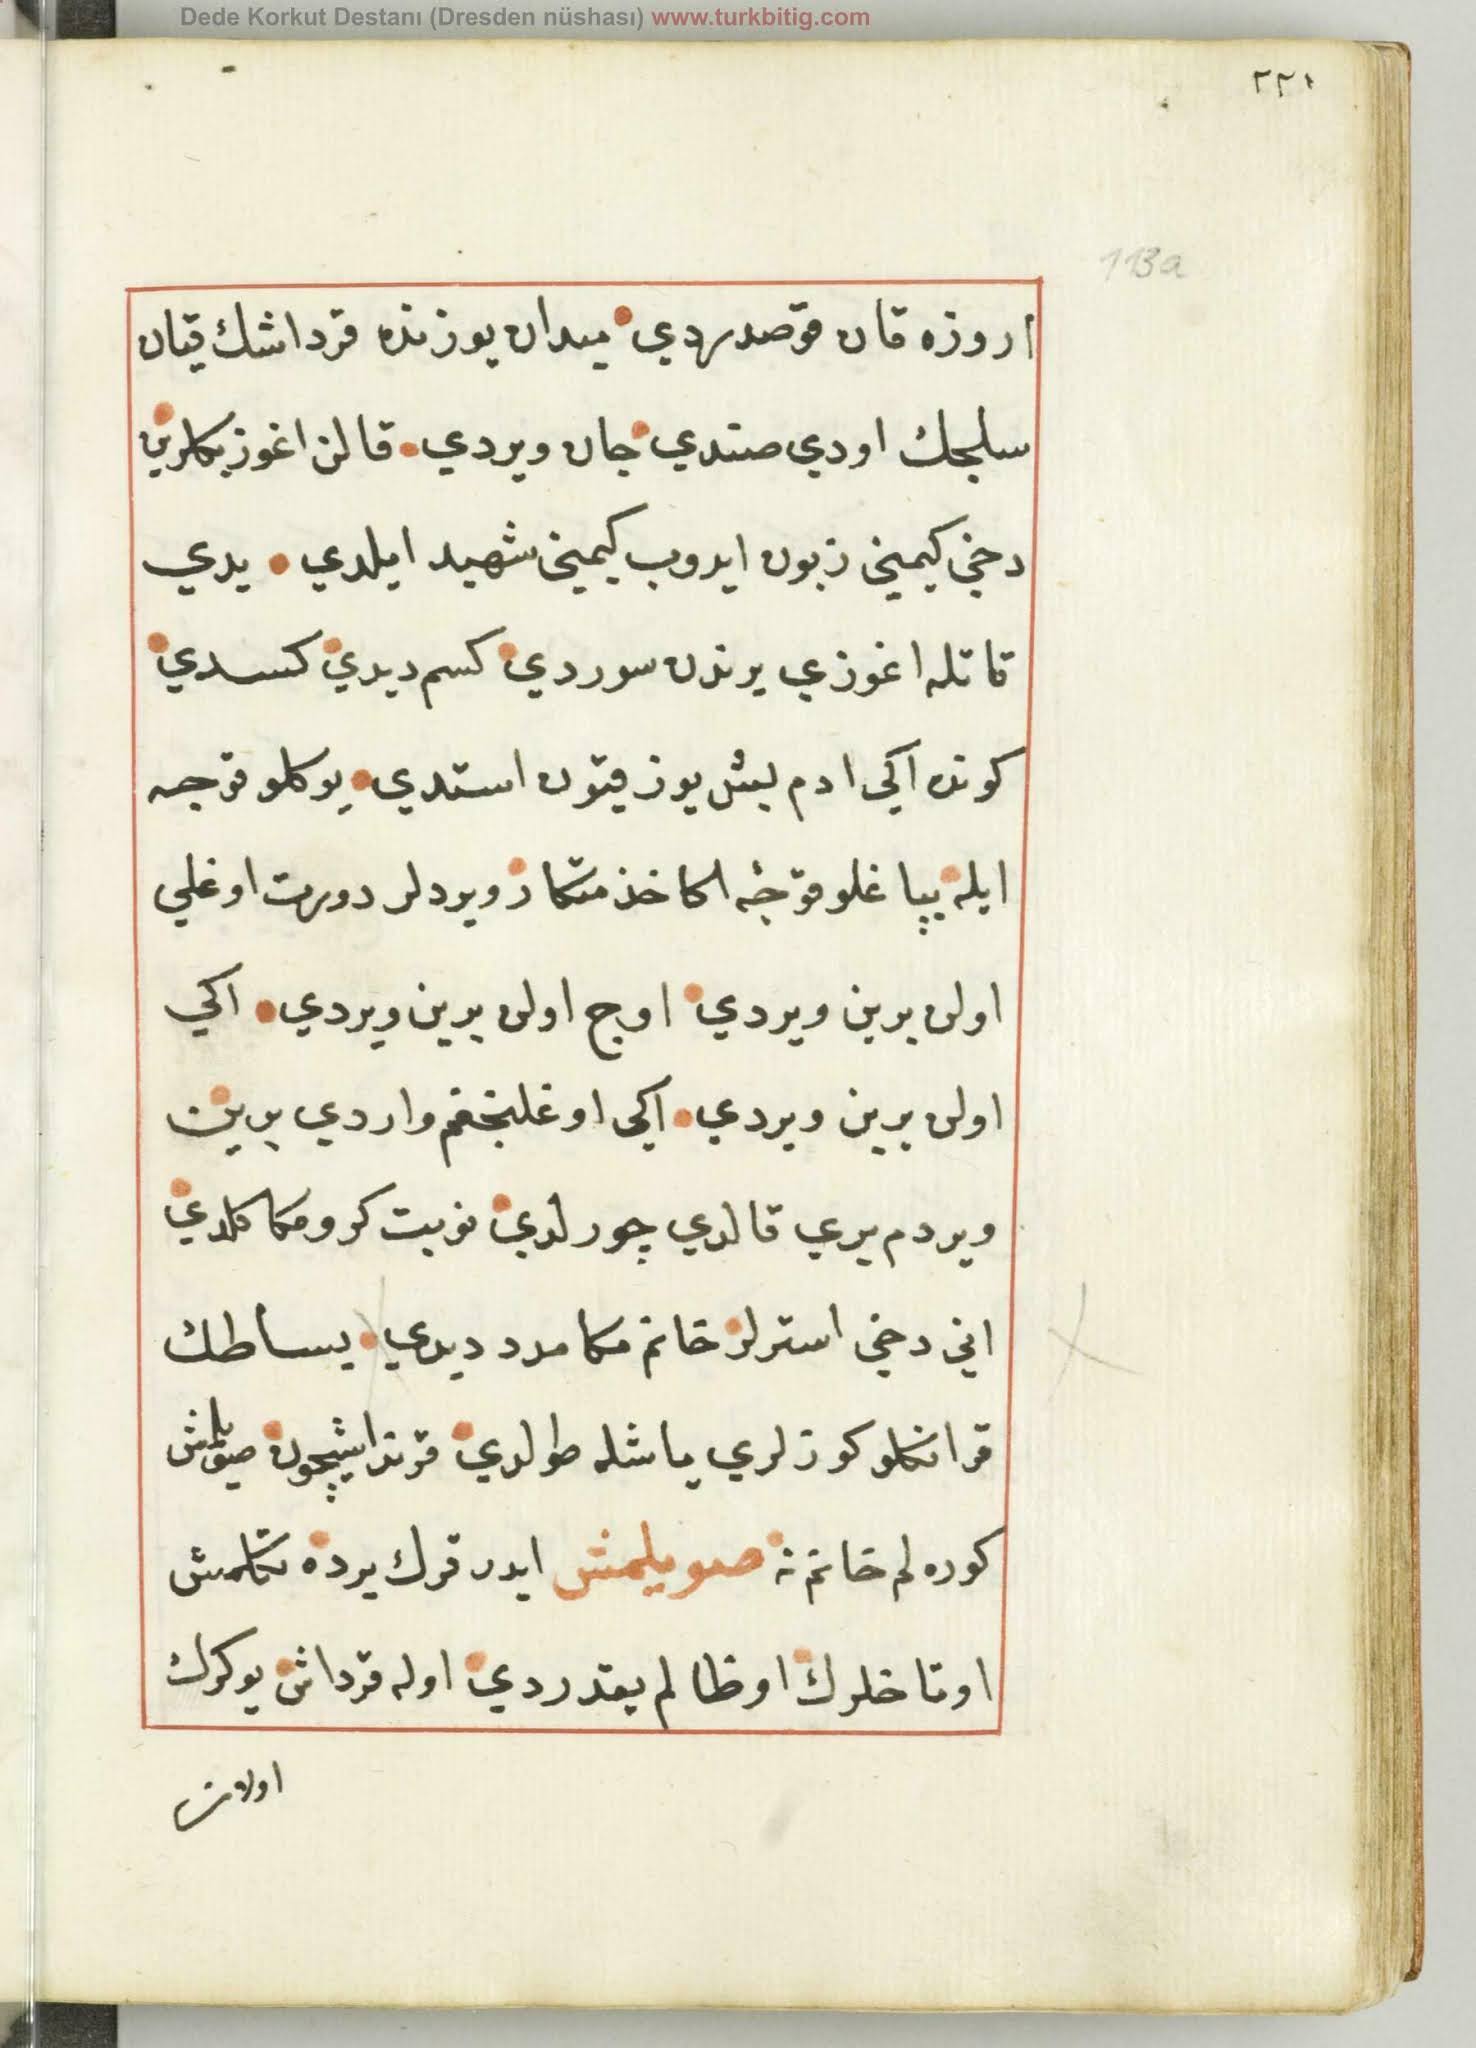 Dede Korkut Destanı (Dresden nüshası) www.turkbitig.com
٢٢١
113a
اروزه قان قوصدردي ميدان يوزنده قرداشك قيان
سلجك اودي صندي جان ويردي قالن اغوز بكلرين
دخي كيميني زبون ايدوب كيميني شهيد ايلدي يدي
قاتله اغوزي يرندن سوردي كسم ديدي كسدي
كونده اكي ادم بيش يوز قيون استدي يوكلو قوجه
ايله يپاغلو قوجه اكا خذمتكار ويردلر دورت اوغلي
اولن برين ويردي اوچ اولن برين ويردي اكي
اولن برين ويردي اكي اوغلنجغم واردي برين
ويردم بري قالدي چورلدي نوبت كرو مكا كلدي
اني دخي استرلر خانم مكا مدد ديدي بساطك
قرانكلو كوزلري ياشله طولدي قرنداشيچون صويلمش
كوره لم خانم نه صويلمش ايدر قرك يرده تكلمش
اوتاخلرك اوظالم يقدردي اوله قرداش يوكرك
اولان